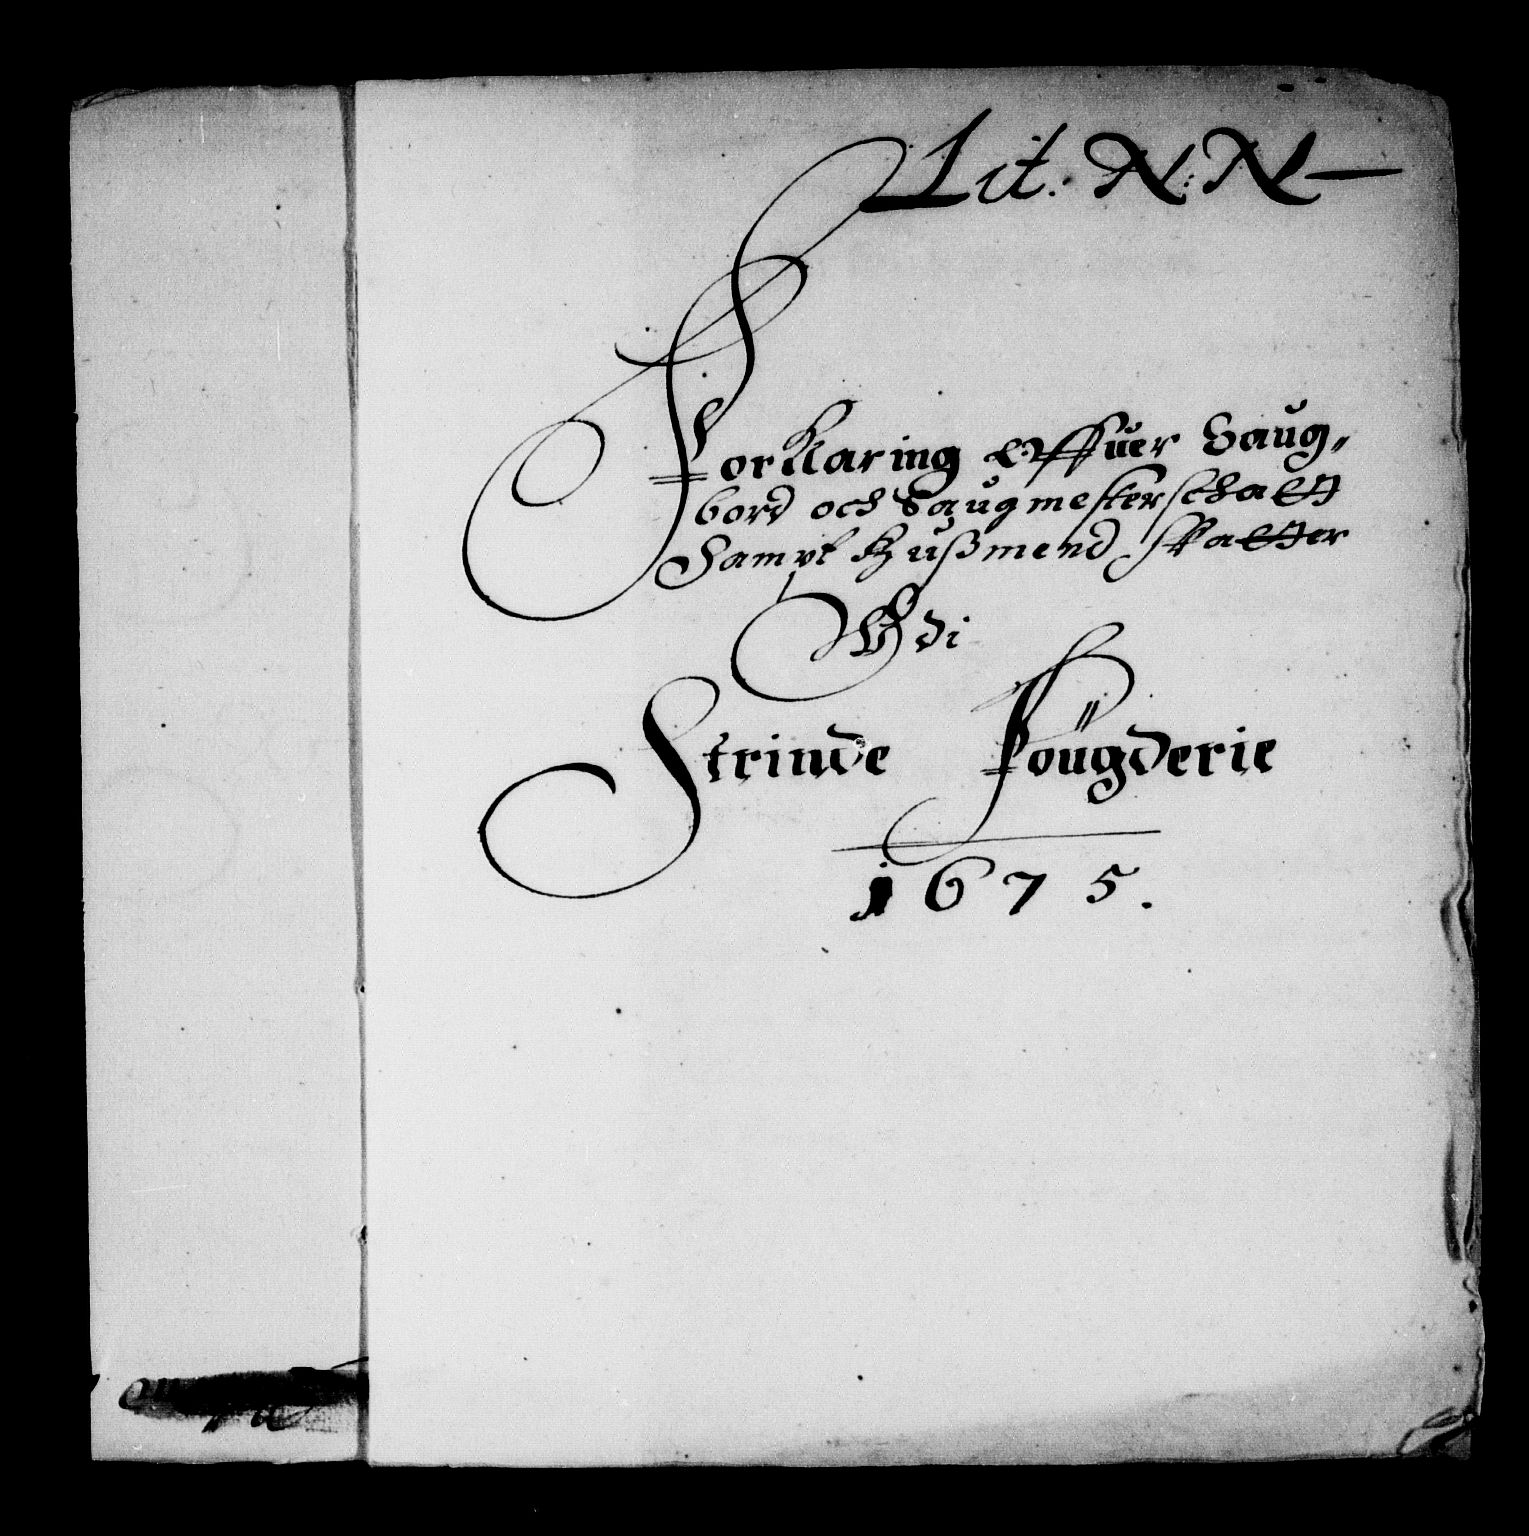 Lit: N: N
Forklaring offuer Saug,,
bord och Saugmesterschatt
Sampt Hußmend skatter
Udi
Strinde Fougderie
1675.